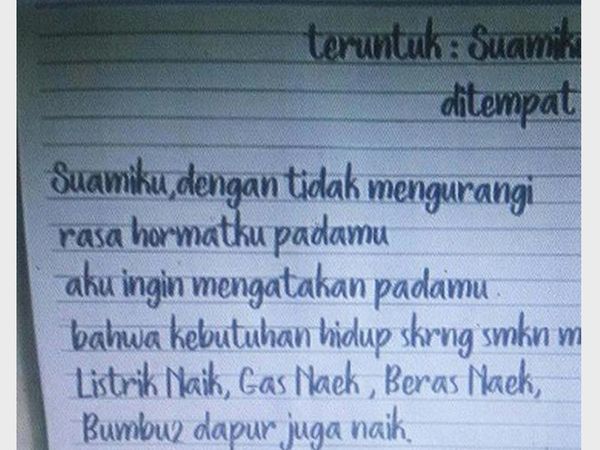 teruntuk : Suamiku
ditempat
Suamiku, dengan tidak mengurangi
rasa hormatku padamu
aku ingin mengatakan padamu.
bahwa kebutuhan hidup skrng smkn
Listrik Naik, Gas Naek, Beras Naek,
Bumbu2 dapur juga naik.